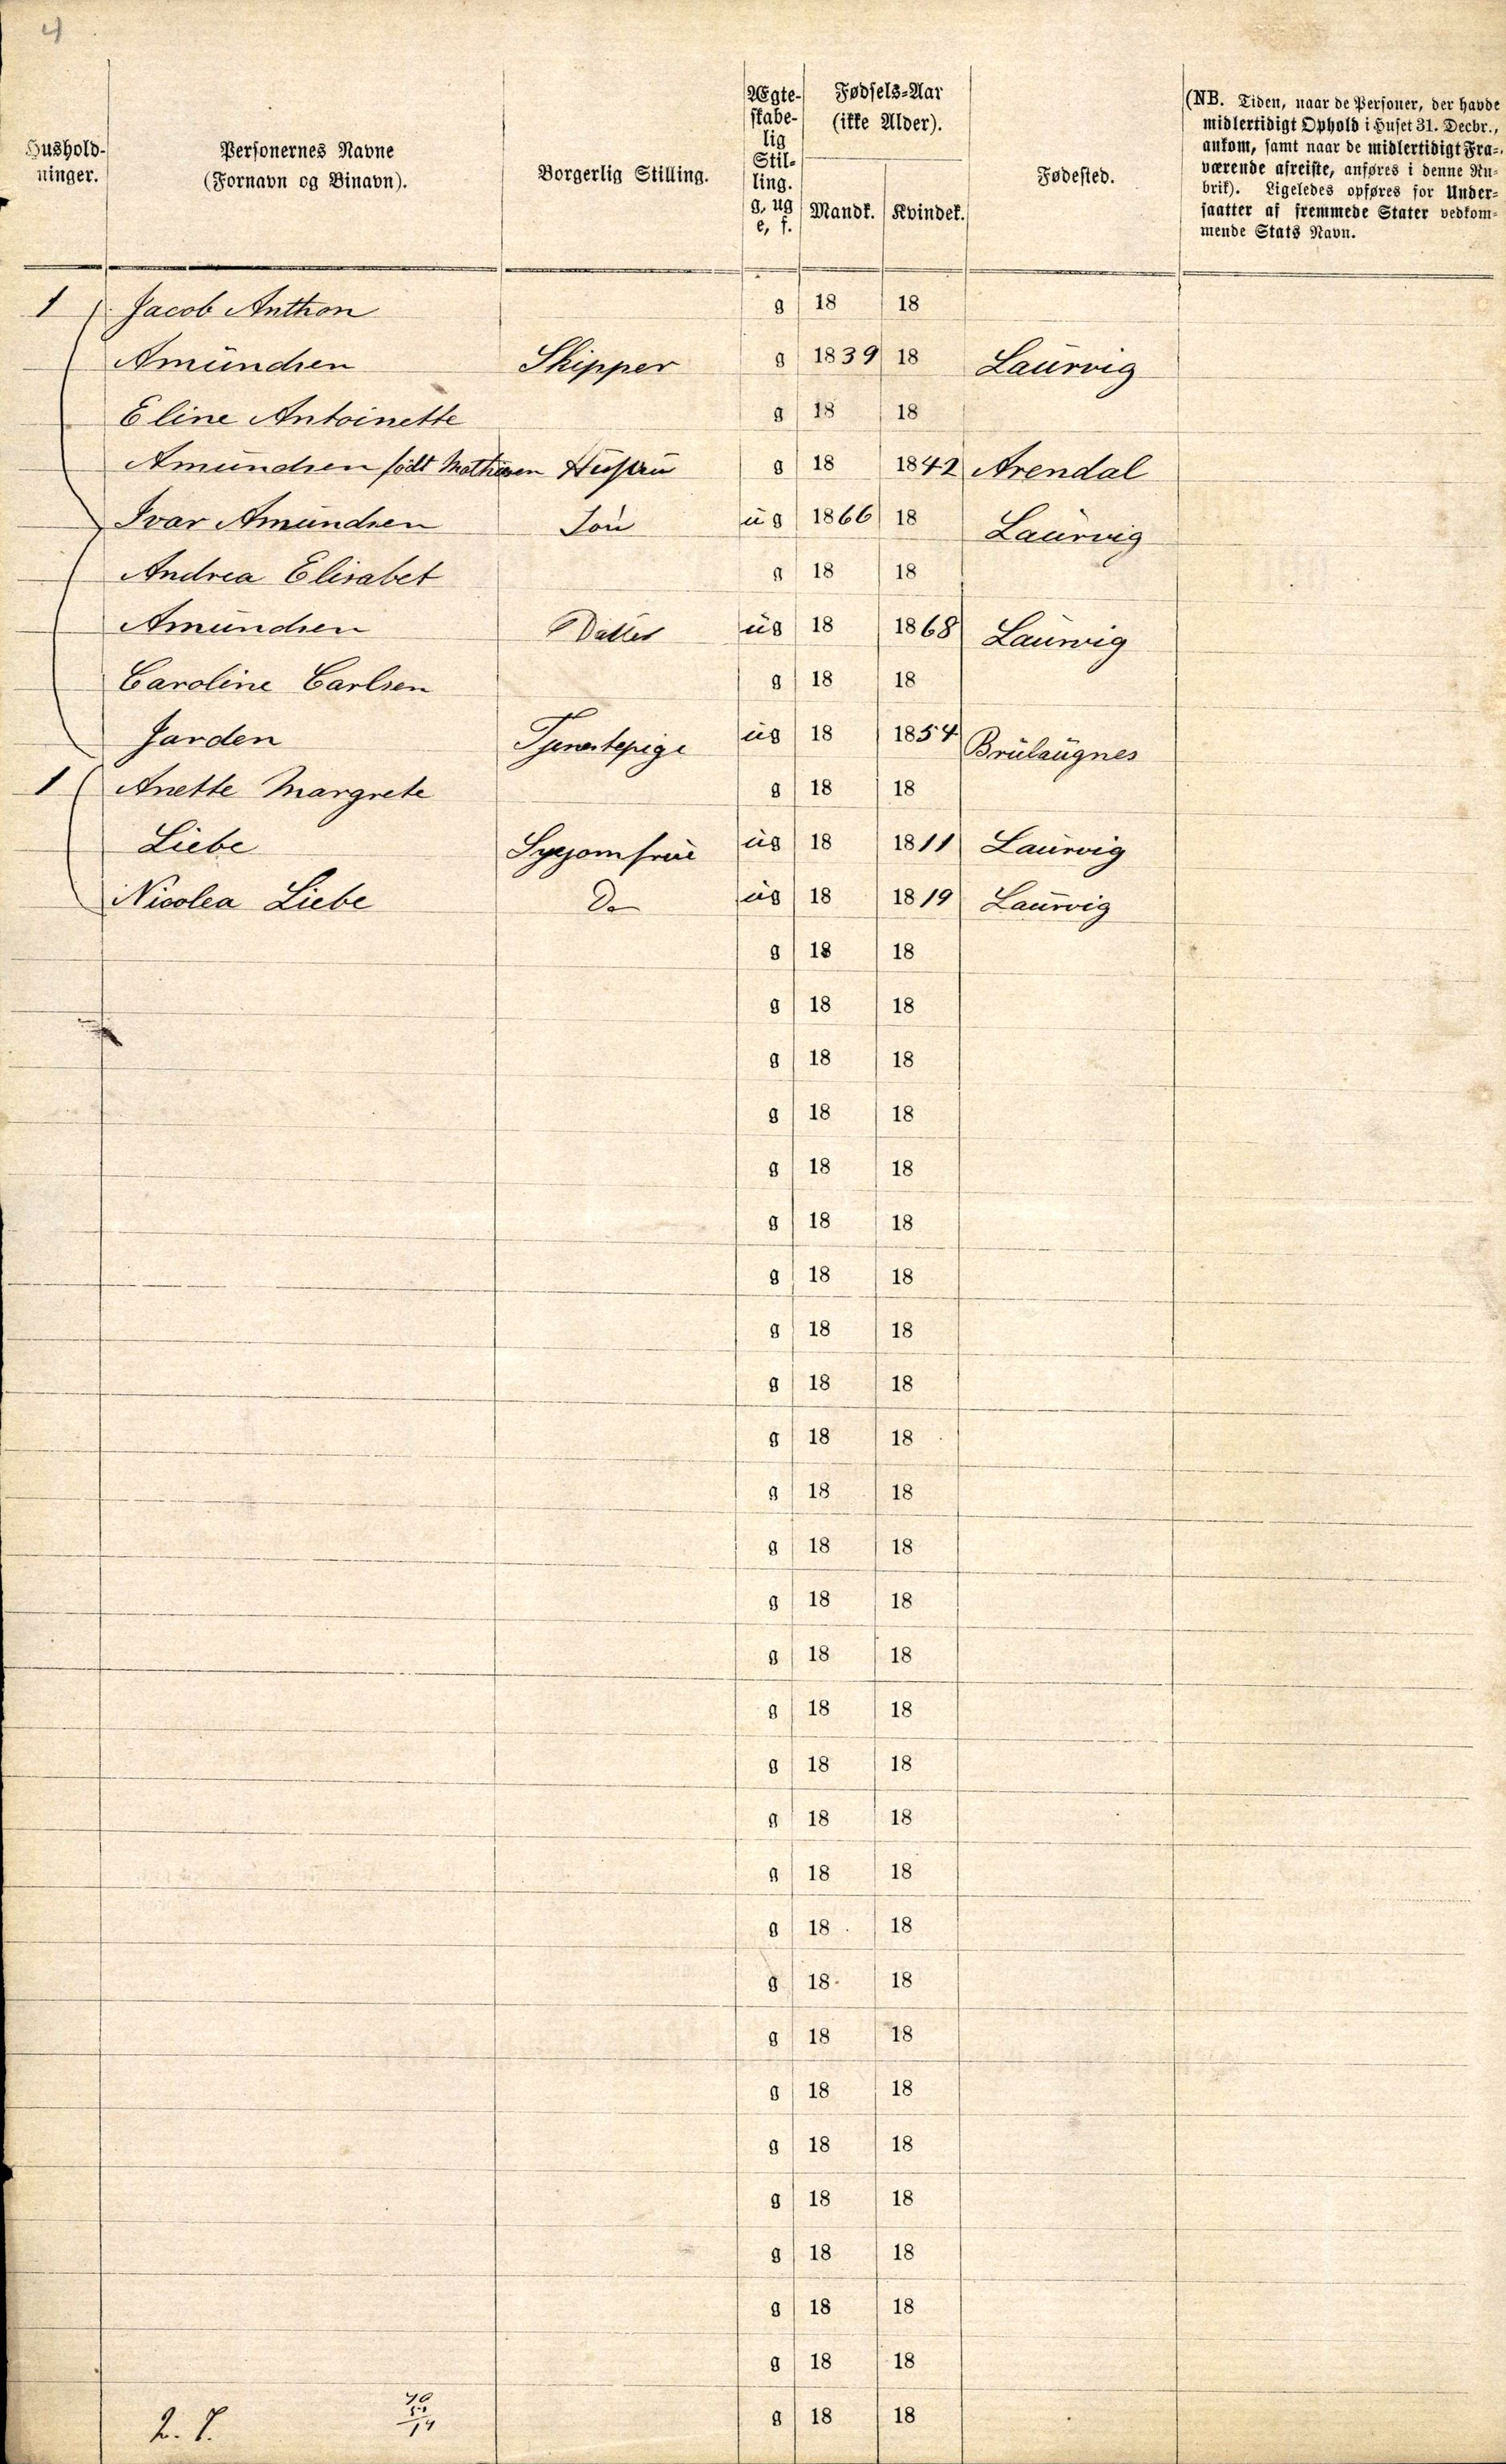 4
Hushold-
ninger.
Personernes Navne
(Fornavn og Binavn).
Borgerlig Stilling.
Ægte-
skabe-
lig
Stil-
ling.
g, ug
e, f.
Fødsels-Aar
(ikke Alder).
Mandk. Kvindek.
Fødested.
(NB. Tiden, naar de Personer, der havde
midlertidigt Ophold i Huset 31. Decbr.,
ankom, samt naar de midlertidigt Fra-
værende afreiste, anføres i denne Ru-
brik). Ligeledes opføres for Under-
saatter af fremmede Stater vedkom-
mende Stats Navn.
1 Jacob Anthon g 18 18
Amŭndsen Skipper g 1839 18 Laŭrvig
Eline Antoinette g 18 18
Amŭndsen födt Mathiesen Hŭstrŭ g 18 1842 Arendal
Ivar Amŭndsen Sön ŭg 1866 18 Laŭrvig
Andrea Elisabet g 18 18
Amŭndsen Datter ŭg 18 1868 Laŭrvig
Caroline Carlsen g 18 18
Jarden Tjenestepige ŭg 18 1854 Brŭlaŭgnes
1 Anette Margrete g 18 18
Liebe Syejomfrŭe ŭg 18 1811 Laŭrvig
Nicolea Liebe Do ŭg 18 1819 Laŭrvig
g 18 18
g 18 18
g 18 18
g 18 18
g 18 18
g 18 18
g 18 18
g 18 18
g 18 18
g 18 18
g 18 18
g 18 18
g 18 18
g 18 18
g 18 18
g 18 18
g 18 18
g 18 18
g 18 18
g 18 18
g 18 18
g 18 18
g 18 18
g 18 18
g 18 18
g 18 18
g 18 18
2. g 18 18